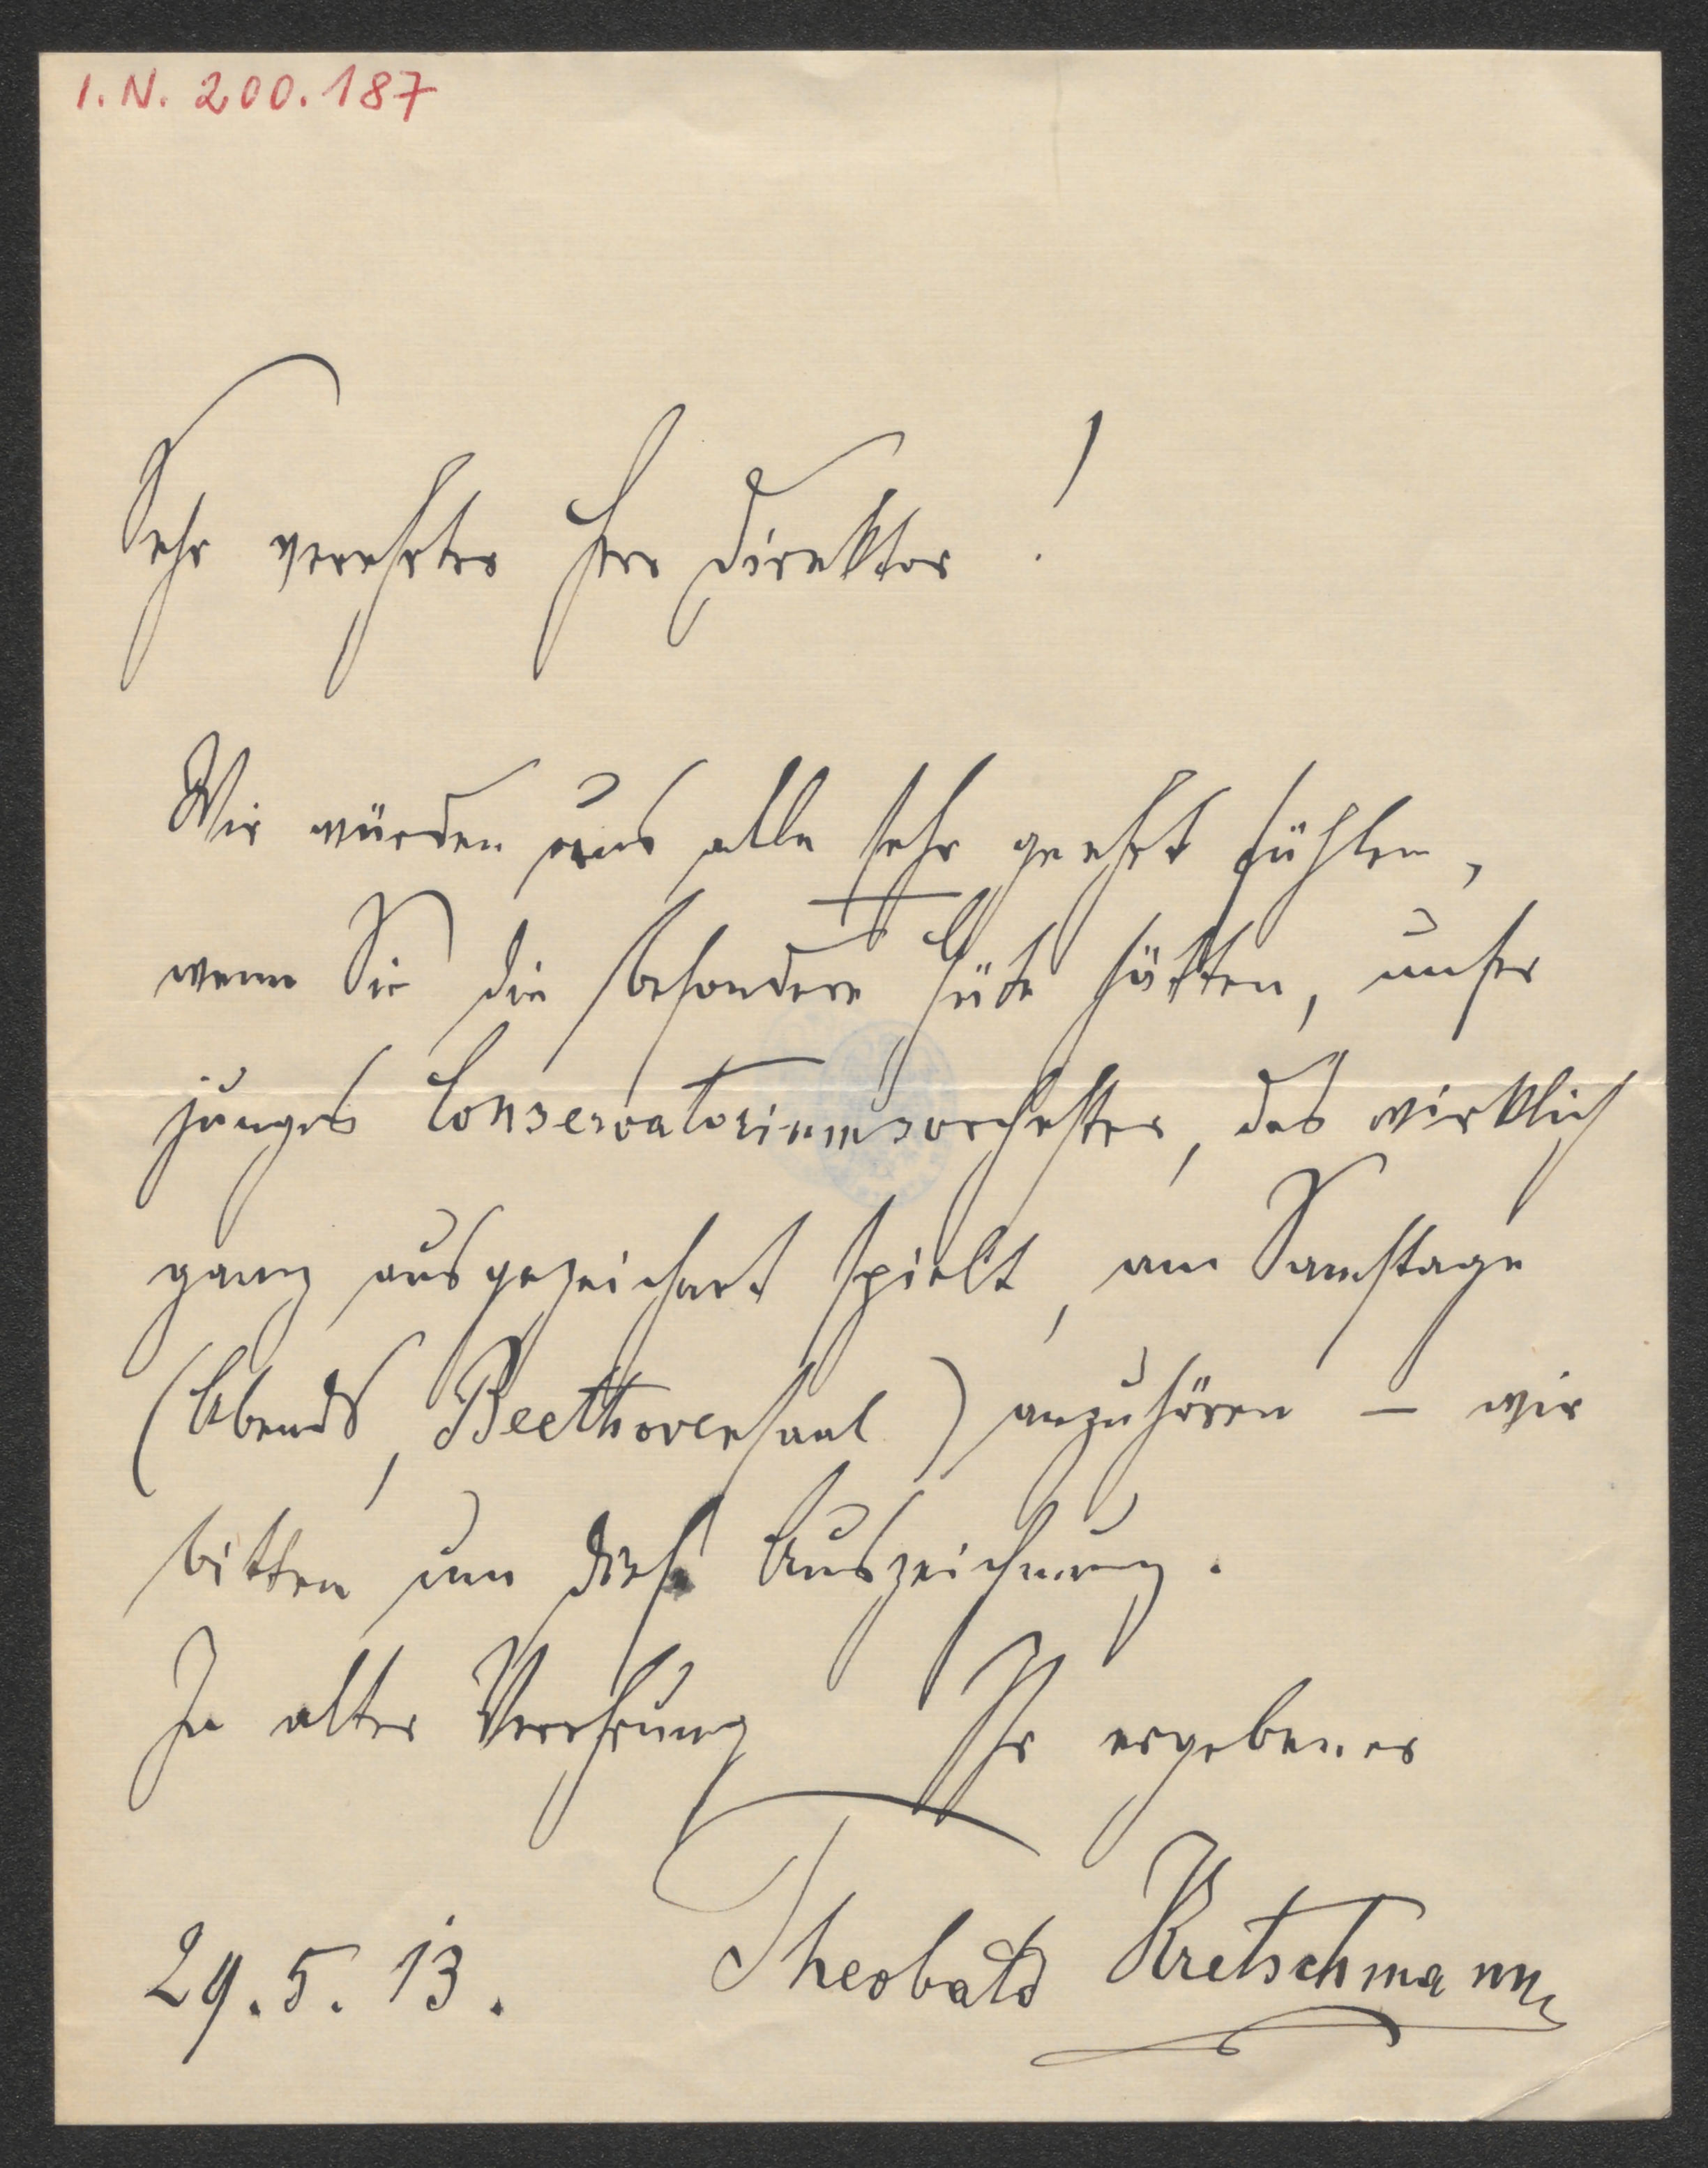 I.N. 200.187
Sehr verehrter Herr Direktor!
Wir würden uns alle sehr geehrt fühlen,
wenn Sie die besondere Güte hätten, unser
junges Conservatoriumsorchester, das wirklich
ganz ausgezeichnet spielt, am Samstage
(Abends, Beethovensaal) anzuhören – wir
bitten um diese Auszeichnung.
In alter Verehrung Ihr ergebener
29.5.13. Theobald Kretschmann